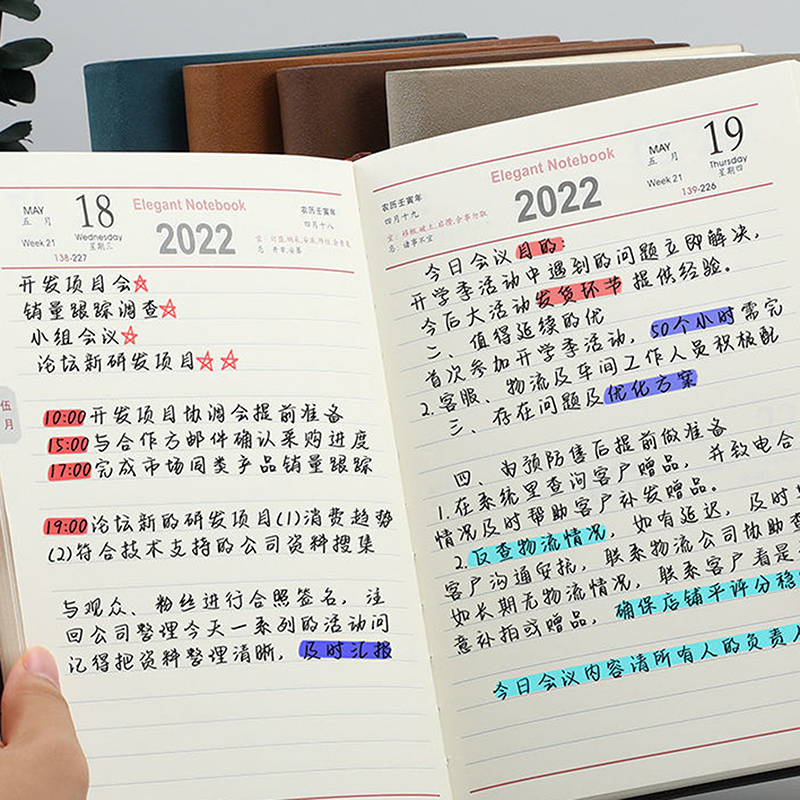 MAY
五 月
18
Wednesday
星期三
Week 21
138-227
Elegant Notebook
2022
农历壬寅年
四月十八
开发项目会☆
销量跟踪调查☆
小组会议☆
论坛新研发项目☆☆
10:00开发项目协调会提前准备
15:00与合作方邮件确认采购进度
17:00完成市场同类产品销量跟踪
19:00论坛新的研发项目(1)消费趋势
(2)符合技术支持的公司资料搜集
与观众、粉丝进行合照签名，注
回公司整理今天一系列的活动问
记得把资料整理清晰，及时汇报
伍
月
农历壬寅年
四月十九
忌：诸事不宜
Elegant Notebook
2022
MAY
五 月
19
Thursday
星期四
Week 21
139-226
今日会议目的：
开学季活动中遇到的问题立即解决，
今后大活动发货环节 提供经验。
二、值得延续的优
首次参加开学季活动，50个小时需完
2.客服、物流及车间工作人员积极配
三、存在问题及优化方案
四、由预防售后提前做准备
1.在系统里查询客户赠品，并致电合
情况及时帮助客户补发赠品。
2.反查物流情况，如有延迟，及时
客户沟通安抚，联系物流公司协助查
如长期无物流情况，联系客户看是
意补拍或赠品，确保店铺平评分稳
今日会议内容请所有人的负责人